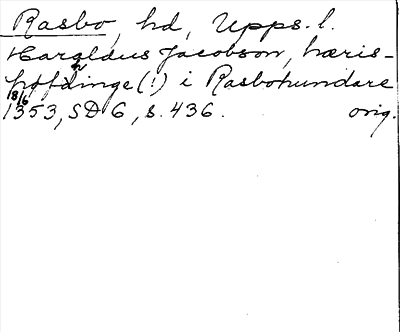 Rasbo, hd, Upps. l.
Haraldus Jacobson, hæris-
høfdhinge (!) i Rasbohundare
18/6 1353, SD 6, s. 436. orig.